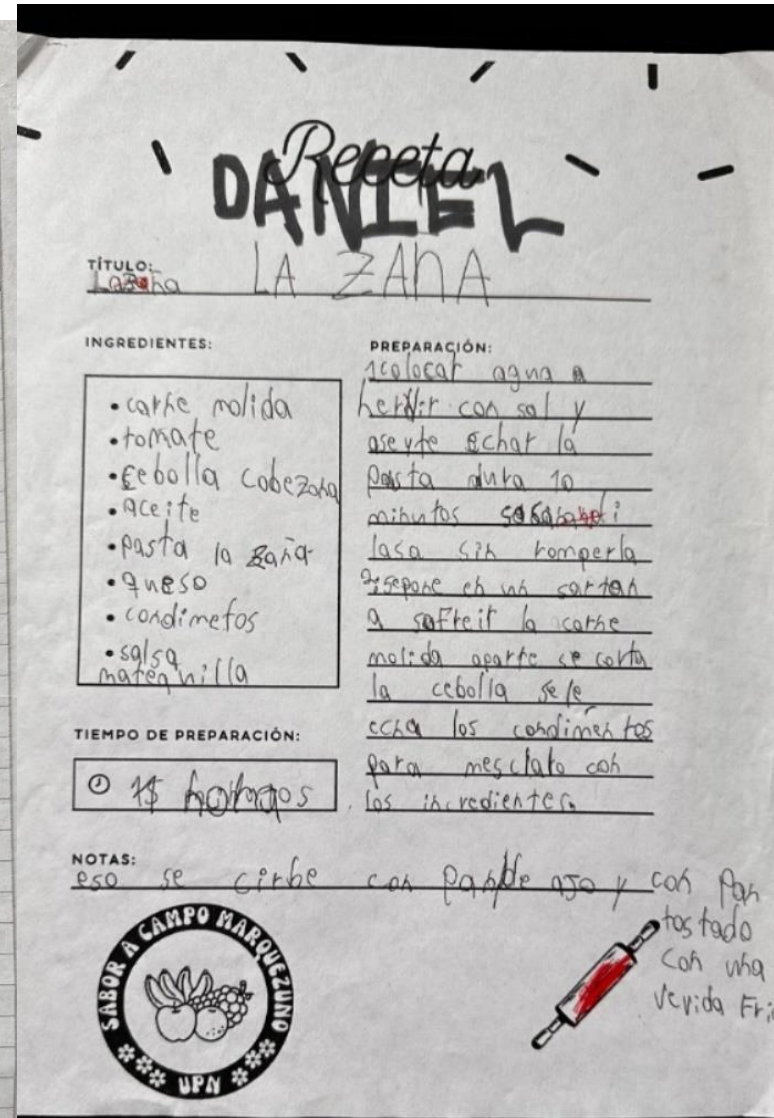 Receta
DANIEL
TÍTULO:
Lazaña LA ZAnA
INGREDIENTES:
• carne molida
• tomate
• cebolla cabezona
• Aceite
• pasta la zaña
• queso
• condimetos
• salsa
matequilla
TIEMPO DE PREPARACIÓN:
PREPARACIÓN:
1 colocar agua a
hervir con sal y
aseyte Echar la
pasta dura 10
minutos
lasa sin romperla
2 sepone en un sarten
a sofreir la carne
molida aparte se corta
la cebolla sele
echa los condimentos
para mesclalo con
los incredientes.
NOTAS:
eso se cirbe con pan de ajo y con pan
tostado
con una
vevida Fri
SABOR A CAMPO MARQUEZUNO
UPN